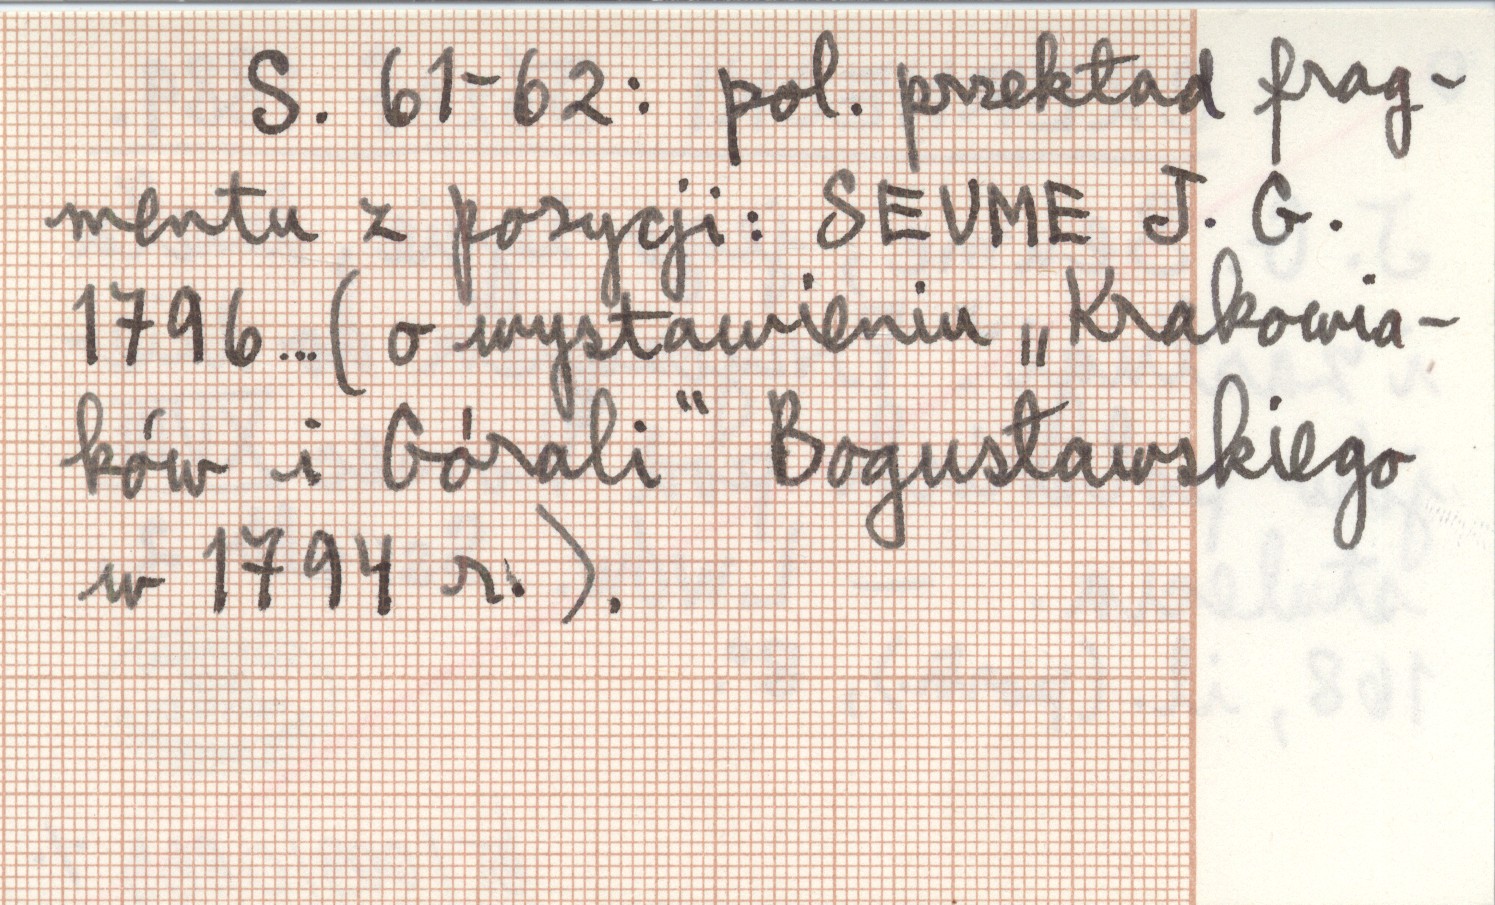 S. 61-62: pol. przekład frag-
mentu z pozycji: SEUME J. G.
1796...(o wystawieniu „Krakowia-
ków i Górali" Bogusławskiego
w 1794 r.).